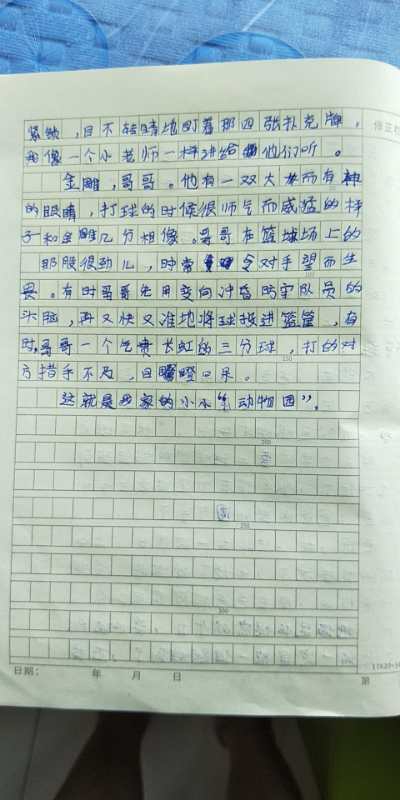 紧皱，目不转睛地盯着那四张扑克牌，
我像一个小老师一样讲给他们听。
金雕，哥哥。他有一双大而有神
的眼睛，打球的时候很帅气而威猛的样
子和金雕几分相像。哥哥在篮球场上的
那股很劲儿，时常令对手望而生
畏。有时哥哥先用变向冲昏防守队员的
头脑，再又快又准地将球投进篮筐，有
时，哥哥一个气贯长虹的三分球，打的对
方措手不及，目瞪口呆。
这就是我家的小小“动物园”。
日期： 年 月 日
第